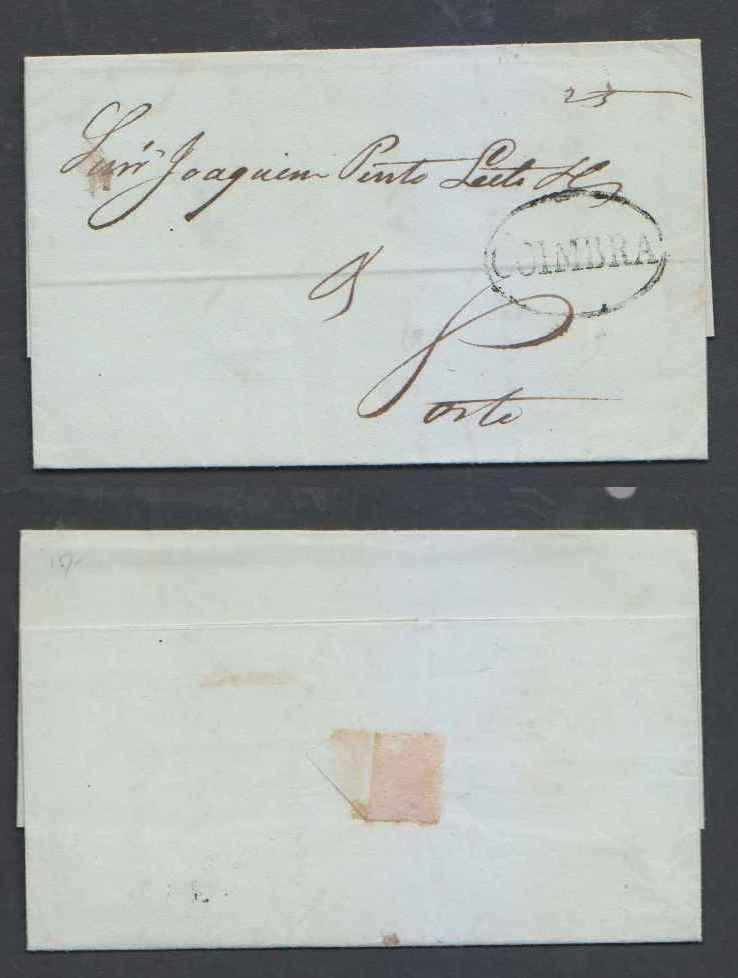 25
Snr Joaquim Pinto Leite
COIMBRA
Porto